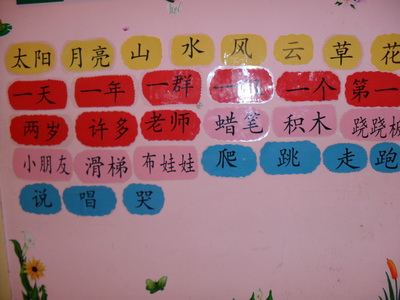 太阳 月亮 山 水 风 云 草 花
一天 一年 一群 一个 第一
两岁 许多 老师 蜡笔 积木 跷跷板
小朋友 滑梯 布娃娃 爬 跳 走 跑
说 唱 哭